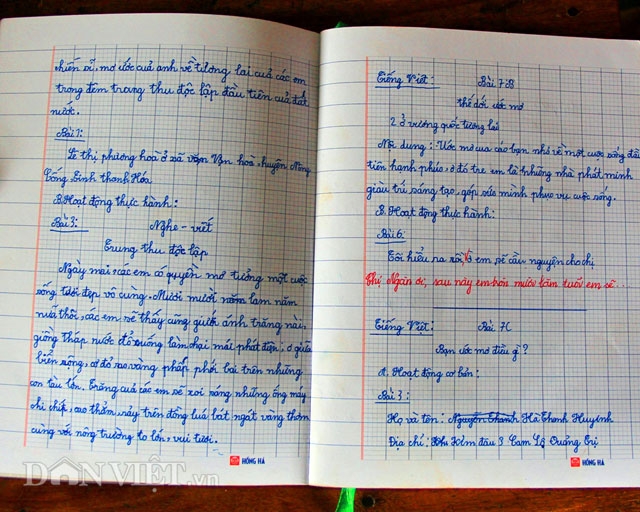 chiến sĩ, mơ ước của anh về tương lai của các em
trong đêm trung thu độc lập đầu tiên của đất
nước.
Bài 1:
Lê thị phương hoà ở xã vạn hoà, huyện Nông
Cống, tỉnh thanh Hóa
B. Hoạt động thực hành:
Bài 3: Nghe - viết
Trung thu độc lập
Ngày mai, các em có quyền mơ tưởng một cuộc
sống tươi đẹp vô cùng. Mươi mười năm lăm năm
nữa thôi, các em sẽ thấy cũng dưới ánh trăng này,
giòng thác nước đổ xuống làm chạy máy phát điện; ở giữa
biển rộng, cờ đỏ sao vàng phấp phới bai trên những
con tàu lớn. Trăng của các em sẽ soi sáng những ống máy
chi chít, cao thẳm, rảy trên đồng luá bát ngát vàng thơm
cùng với nông trường to lớn, vui tươi.
DÂN VIỆT.vn
HỒNG HÀ
Tiếng Việt: Bài 7B
thế dới ước mơ
2 ở vương quốc tương lai
Nội dung: Ước mơ của các bạn nhỏ về một cuộc sống đầ
tiên hạnh phúc, ở đó trẻ em là những nhà phát minh
giàu trí sáng tạo, góp sức mình phục vụ cuộc sống.
B. Hoạt động thực hành:
Bài 6:
Tôi hiểu ra rồi, em sẽ cầu nguyện cho chị
Chị Ngàn ơi, sau này em mười lăm tuổi em sẽ...
Tiếng Việt: Bài 7C
Bạn ước mơ điều gì?
A. Hoạt động cơ bản:
Bài 3:
Họ và tên: Nguyễn Thành Hà Thanh Huynh
Địa chỉ: Khu 3 Cam Lộ Quảng Trị
HỒNG HÀ